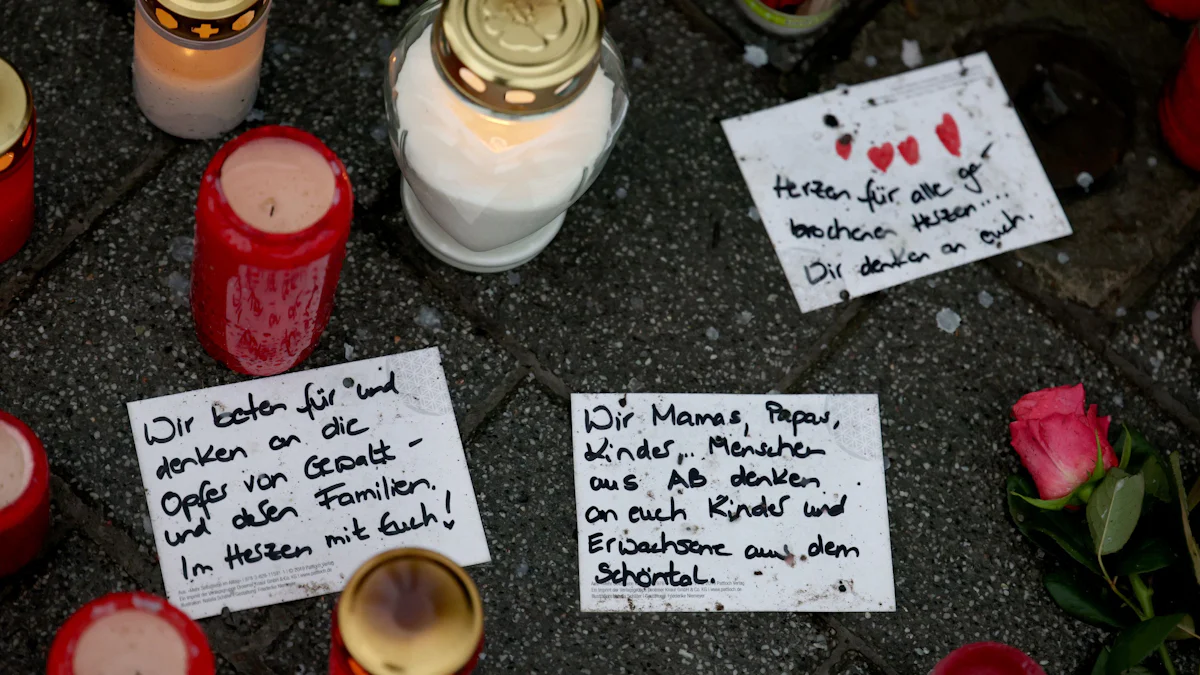 Herzen für alle ge-
brochenen Herzen....
Wir denken an euch.
Wir beten für und
denken an die
Opfer von Gewalt -
und deren Familien.
Im Herzen mit Euch!
Wir Mamas, Papas,
Kinder,.. Menschen
aus AB denken
an euch Kinder und
Erwachsene aus dem
Schöntal.